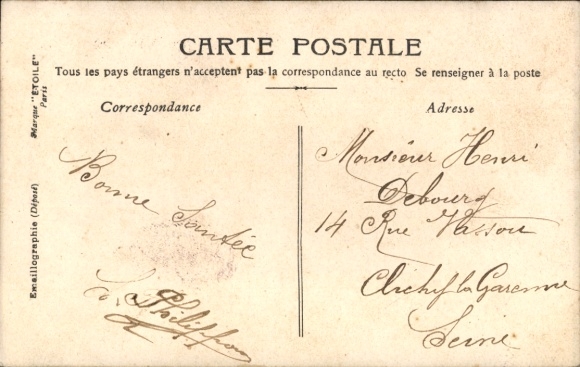 CARTE POSTALE
Tous les pays étrangers n'acceptent pas la correspondance au recto Se renseigner à la poste
Correspondance
Adresse
Marque "ÉTOILE"
Paris
Emaillographie (Déposé)
Bonne Santée
Philippon
Monsieur Henri
Debourg
14 Rue
Clichy la Garenne
Seine